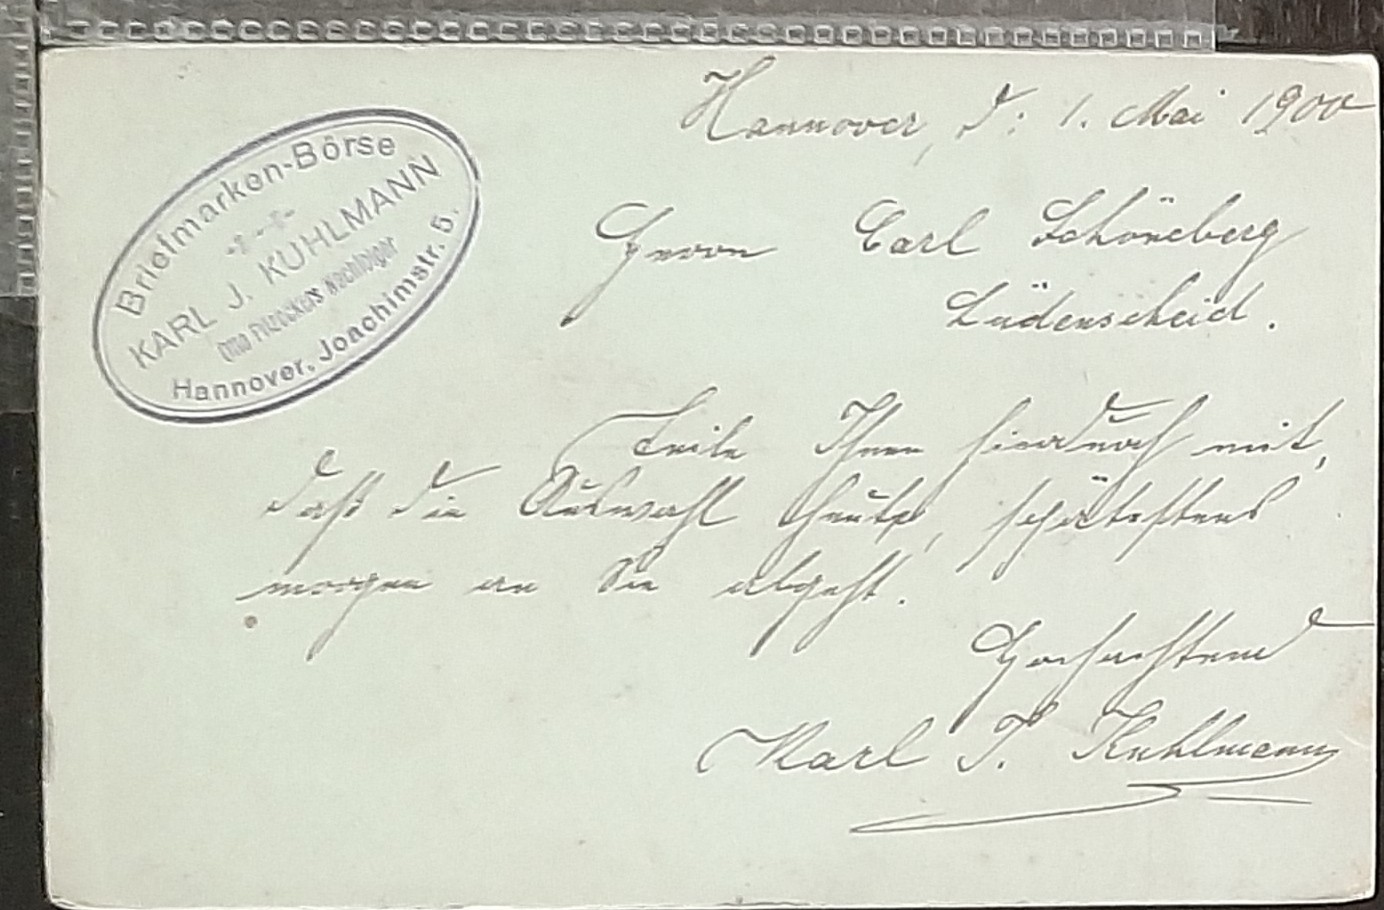 Briefmarken-Börse
KARL J. KUHLMANN
Nachfolger
Hannover, Joachimstr. 5.
Hannover, d: 1. Mai 1900
Herrn Carl Schöneberg
Lüdenscheid.
Teile Ihnen hierdurch mit,
daß die Auswahl heute, spätestens
morgen an Sie abgeht.
Hochachtend
Karl J. Kuhlmann